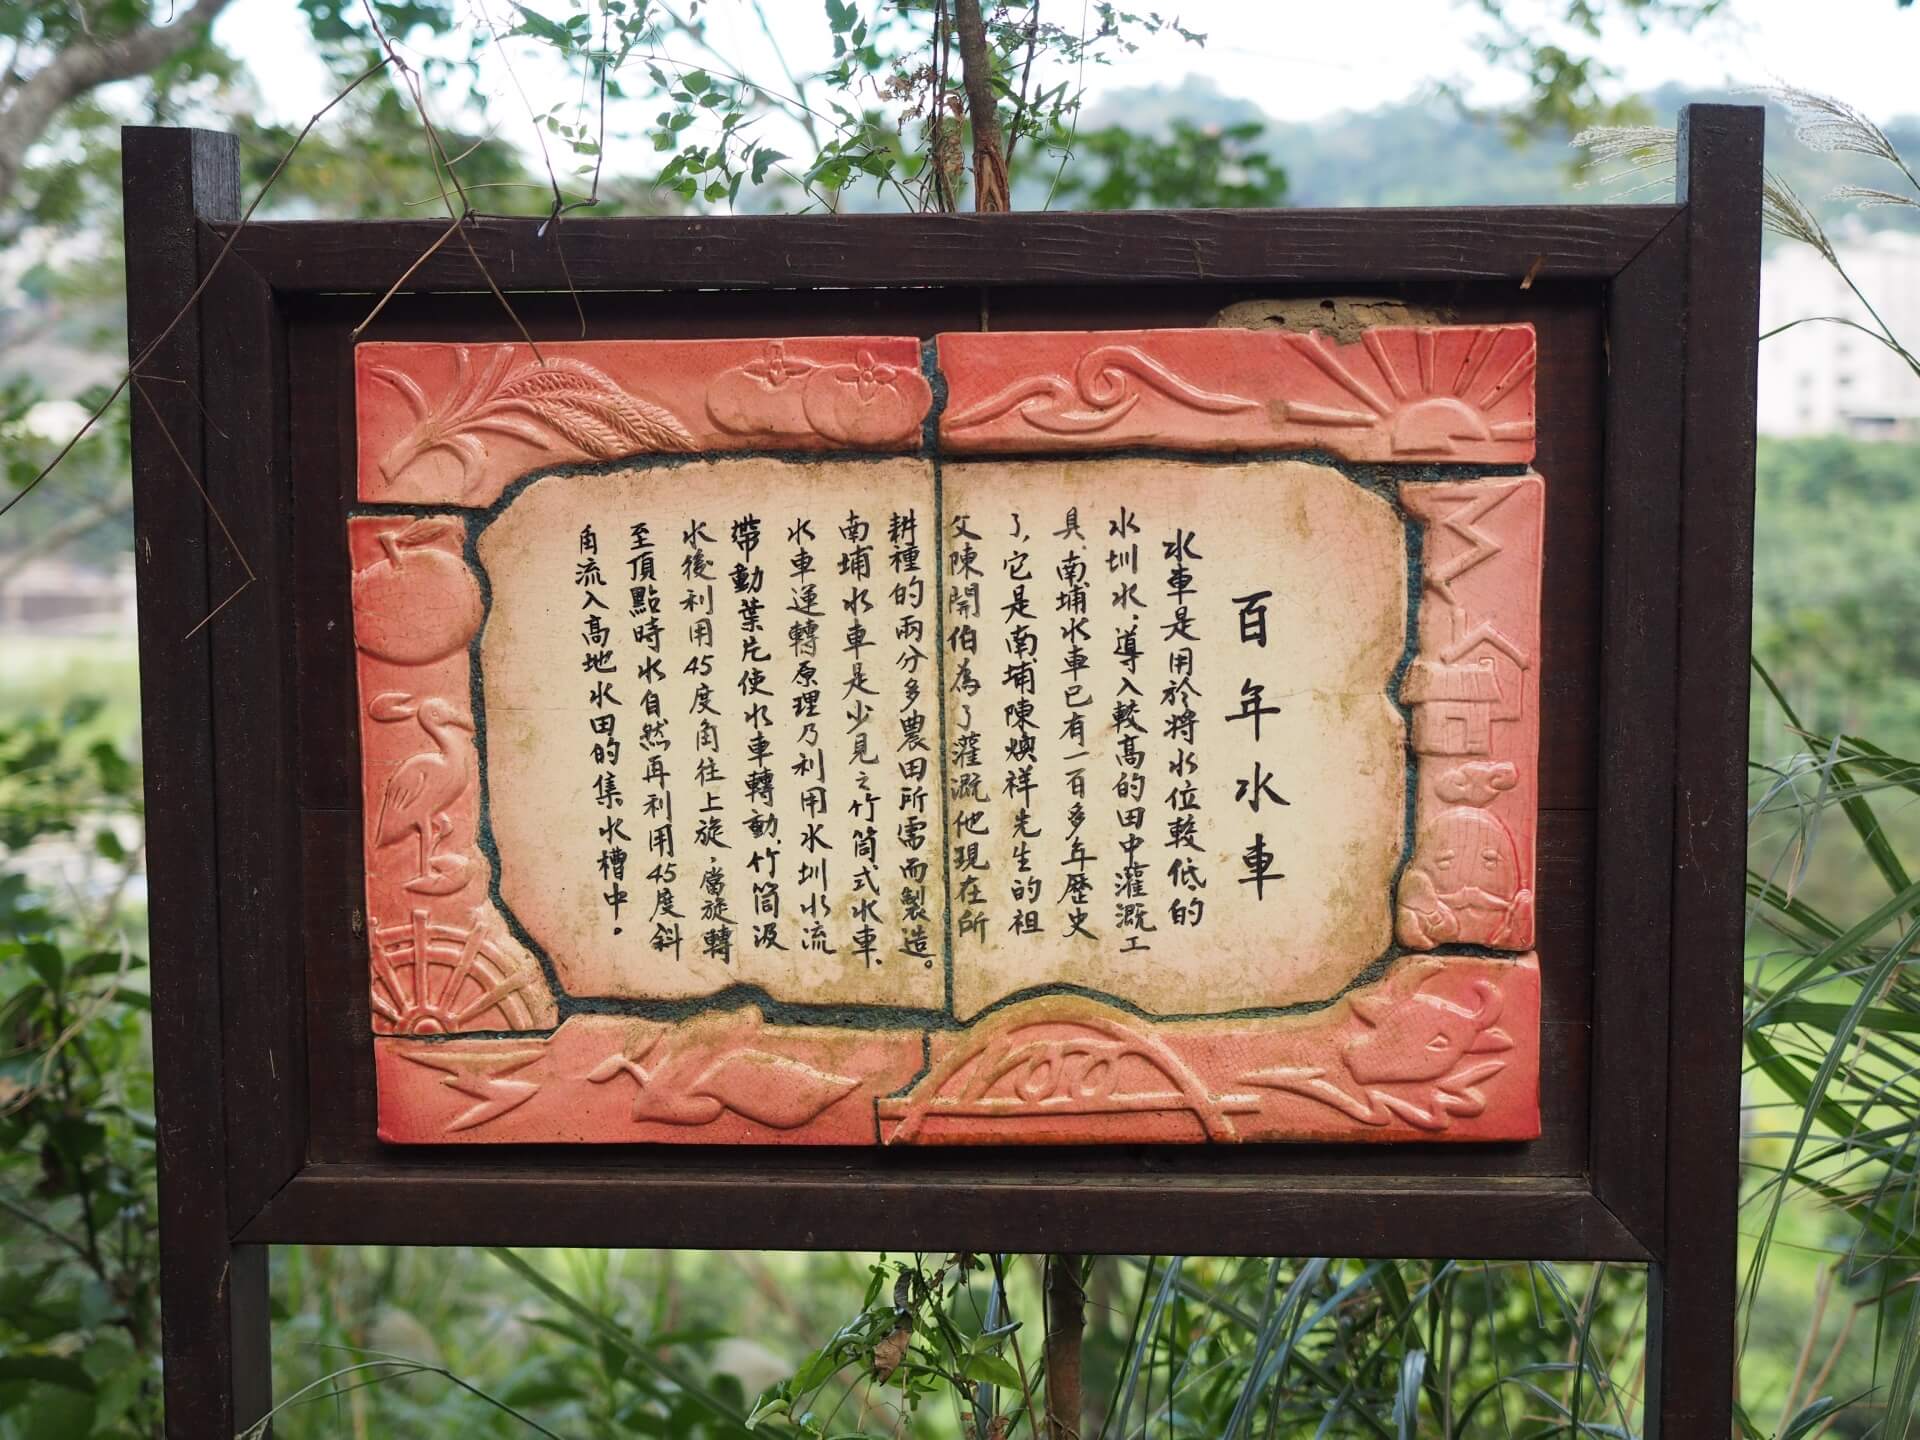 百年水車
水車是用於將水位較低的
水圳水，導入較高的田中灌溉工
具，南埔水車已有一百多年歷史
了，它是南埔陳煥祥先生的祖
父陳開伯為了灌溉他現在所
耕種的兩分多農田所需而製造。
南埔水車是少見之竹筒式水車、
水車運轉原理乃利用水圳水流
帶動葉片使水車轉動，竹筒汲
水後利用45度角往上旋，當旋轉
至頂點時水自然再利用45度斜
角流入高地水田的集水槽中。
100